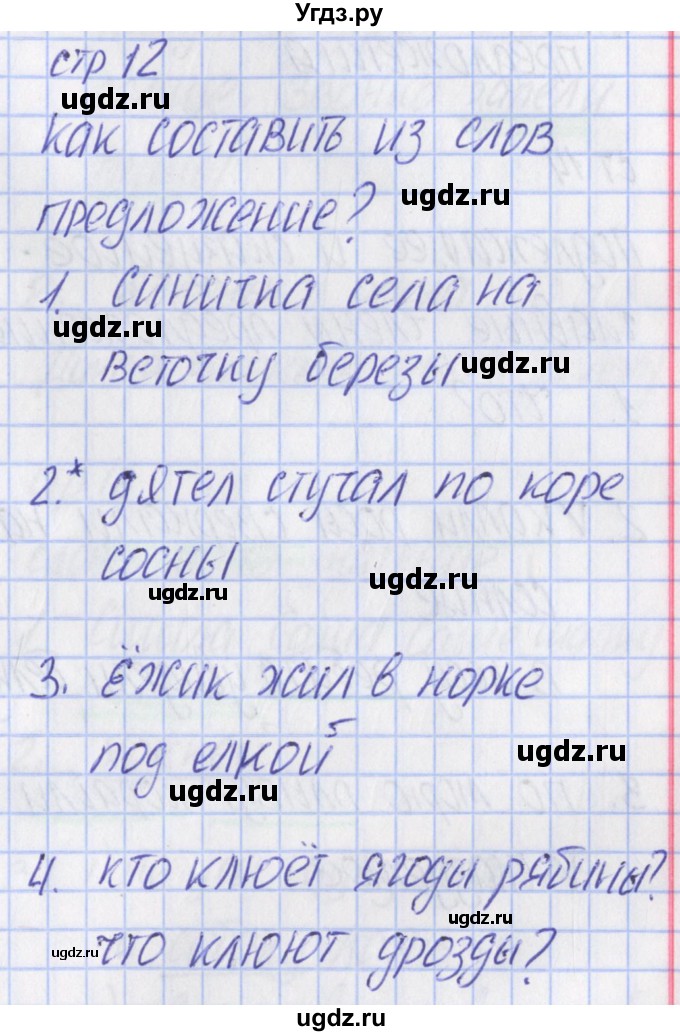 Угдз.ру
стр 12
ugdz.ru
как составить из слов
ugdz.ru
предложение?
1. синитка села на
ugdz.ru
веточку березы
ugdz.ru
2.* дятел стучал по коре
сосны
ugdz.ru
ugdz.ru
3. ёжик жил в норке
под елкой 5
ugdz.ru
ugdz.ru
4. кто клюёт ягоды рябины?
ugdz.ru
ugdz.ru
что клюют дрозды?
ugdz.ru